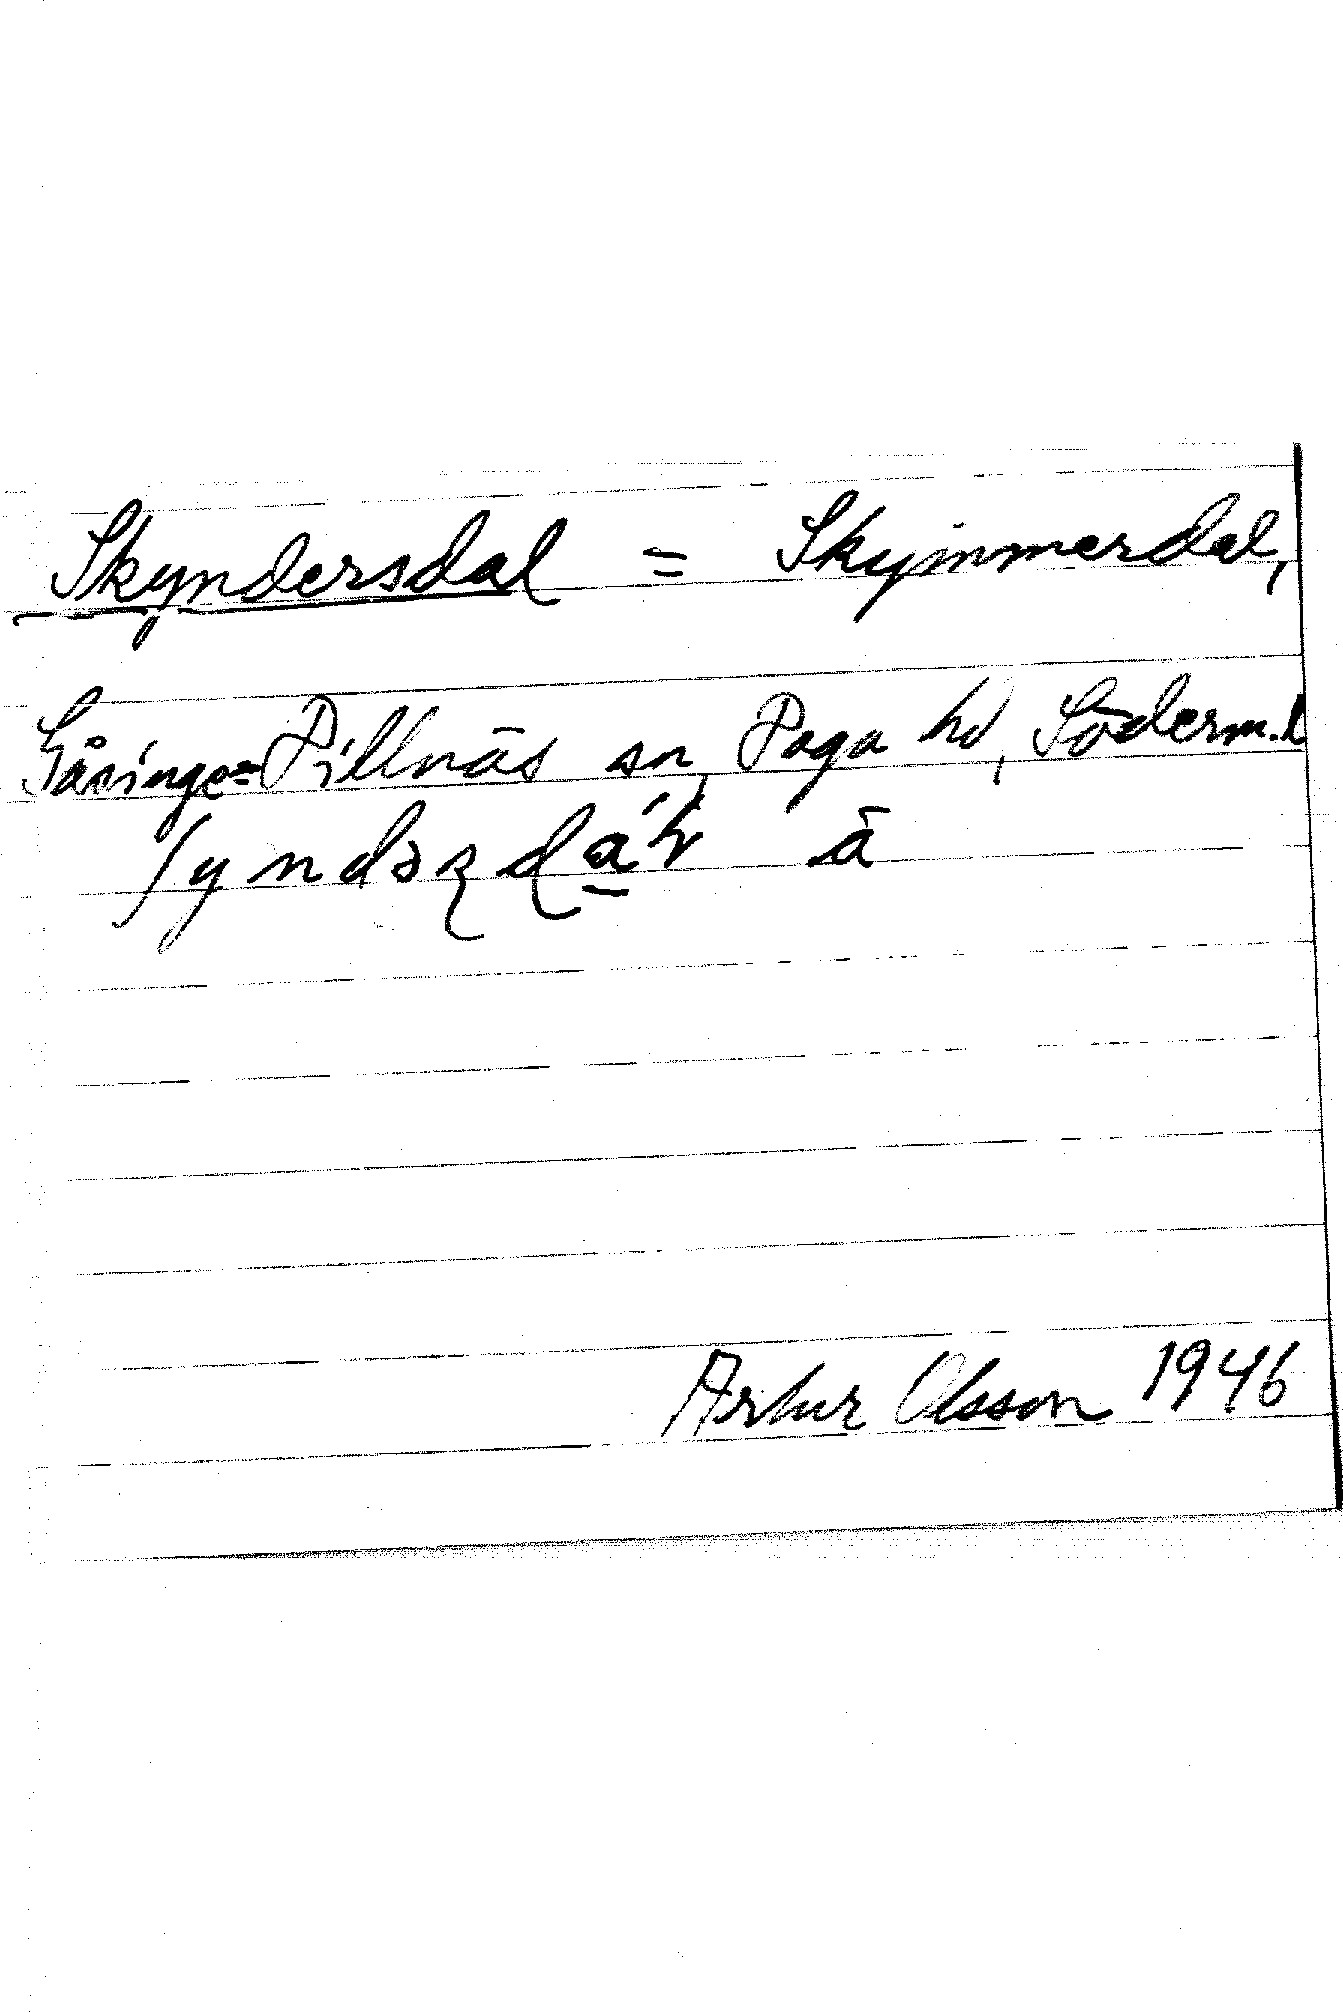 Skyndersdal = Skymmerdal,
Gåsinge=Dillnäs sn, Daga hd, Söderm.l
Artur Olsson 1946